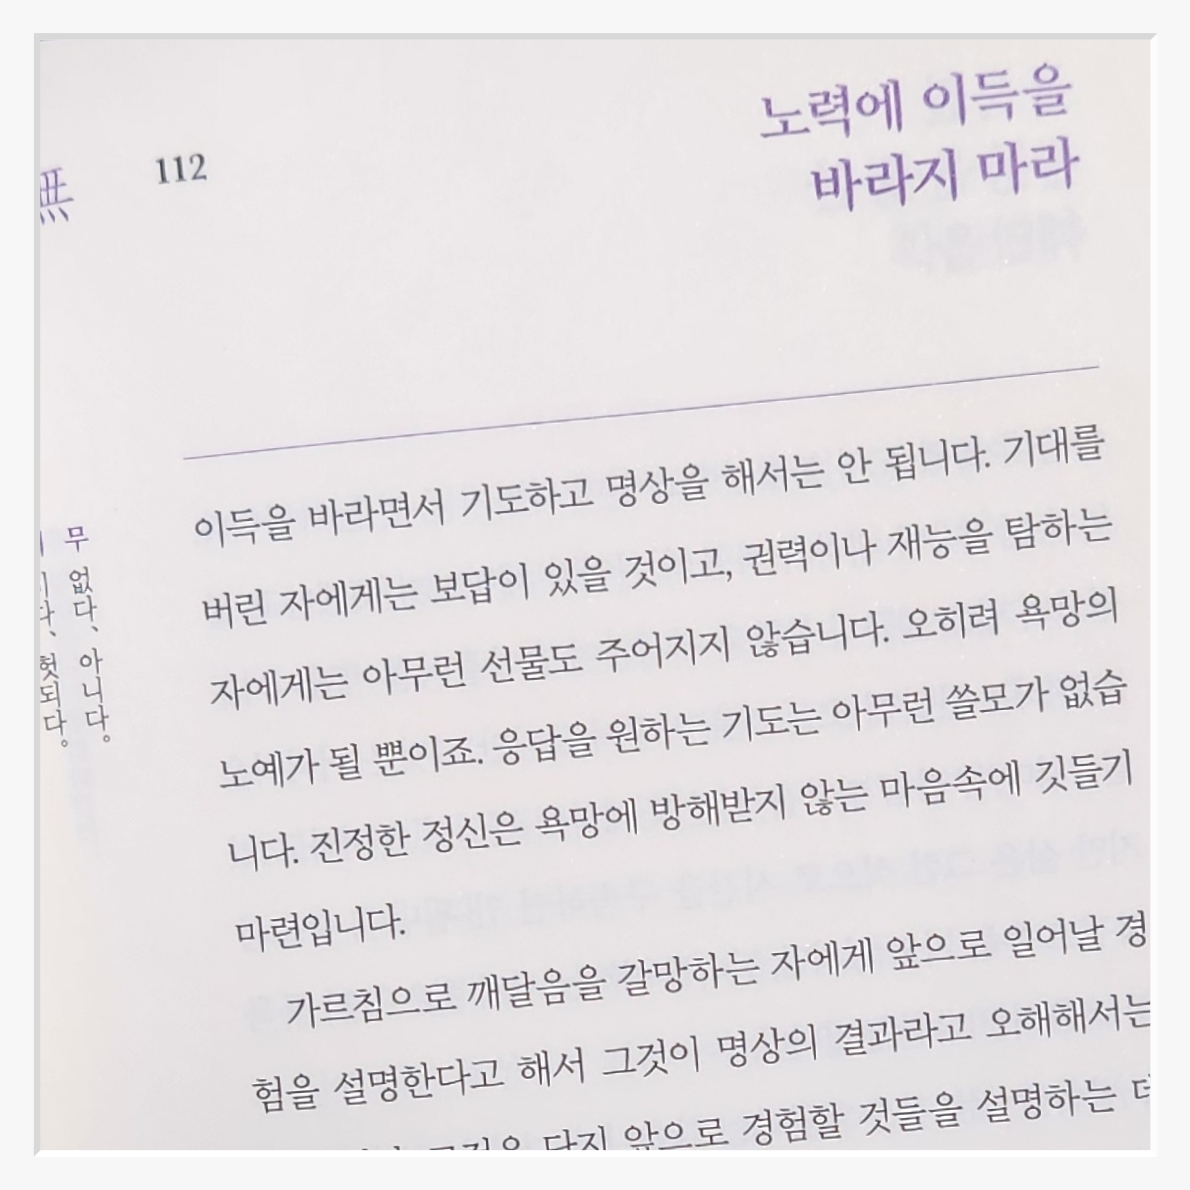 無
112
노력에 이득을
바라지 마라
무
없다、아니다。
헛되다。
이득을 바라면서 기도하고 명상을 해서는 안 됩니다. 기대를
버린 자에게는 보답이 있을 것이고, 권력이나 재능을 탐하는
자에게는 아무런 선물도 주어지지 않습니다. 오히려 욕망의
노예가 될 뿐이죠. 응답을 원하는 기도는 아무런 쓸모가 없습
니다. 진정한 정신은 욕망에 방해받지 않는 마음속에 깃들기
마련입니다.
가르침으로 깨달음을 갈망하는 자에게 앞으로 일어날 경
험을 설명한다고 해서 그것이 명상의 결과라고 오해해서는
단지 앞으로 경험할 것들을 설명하는